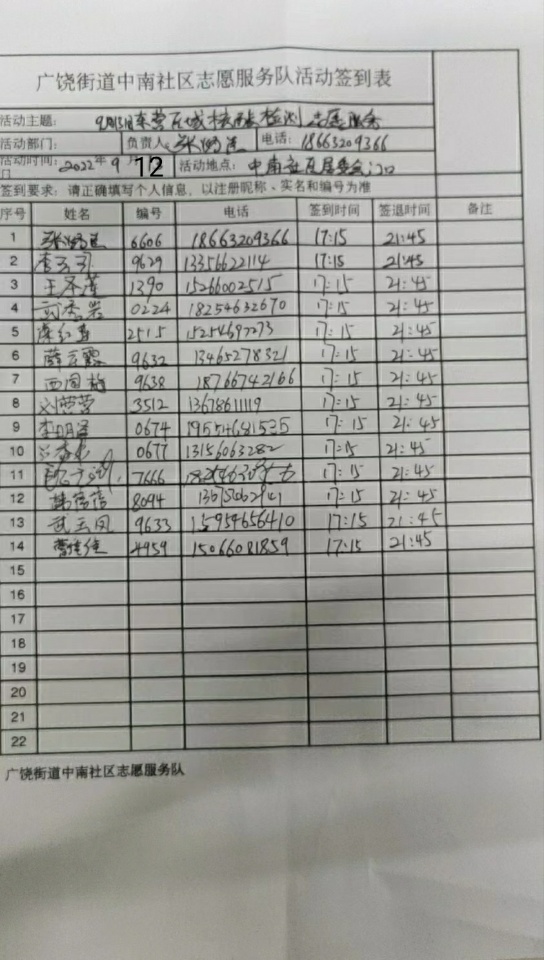 广饶街道中南社区志愿服务队活动签到表
活动主题: 9月13日东营区城核酸检测志愿服务
活动部门: 负责人: 张 电话: 18663209366
活动时间: 2022年9月12日 活动地点: 中南社区居委会门口
签到要求: 请正确填写个人信息, 以注册昵称、实名和编号为准
序号 姓名 编号 电话 签到时间 签退时间 备注
1 张 6606 18663209366 17:15 21:45
2 李 9629 13356622114 17:15 21:45
3 王泽莲 1390 15266002515 17:15 21:45
4 武秀岩 0224 18254632670 17:15 21:45
5 2515 15254692273 17:15 21:45
6 薛云霞 9632 13465278321 17:15 21:45
7 西同梅 9638 18766742166 17:15 21:45
8 刘营营 3512 13678611119 17:15 21:45
9 李明泽 0674 17:15 21:45
10 0677 13156063282 17:15 21:45
11 7666 17:15 21:45
12 韩蓓蓓 8094 17:15 21:45
13 武玉凤 9633 15954656410 17:15 21:45
14 4959 15066081859 17:15 21:45
15
16
17
18
19
20
21
22
广饶街道中南社区志愿服务队